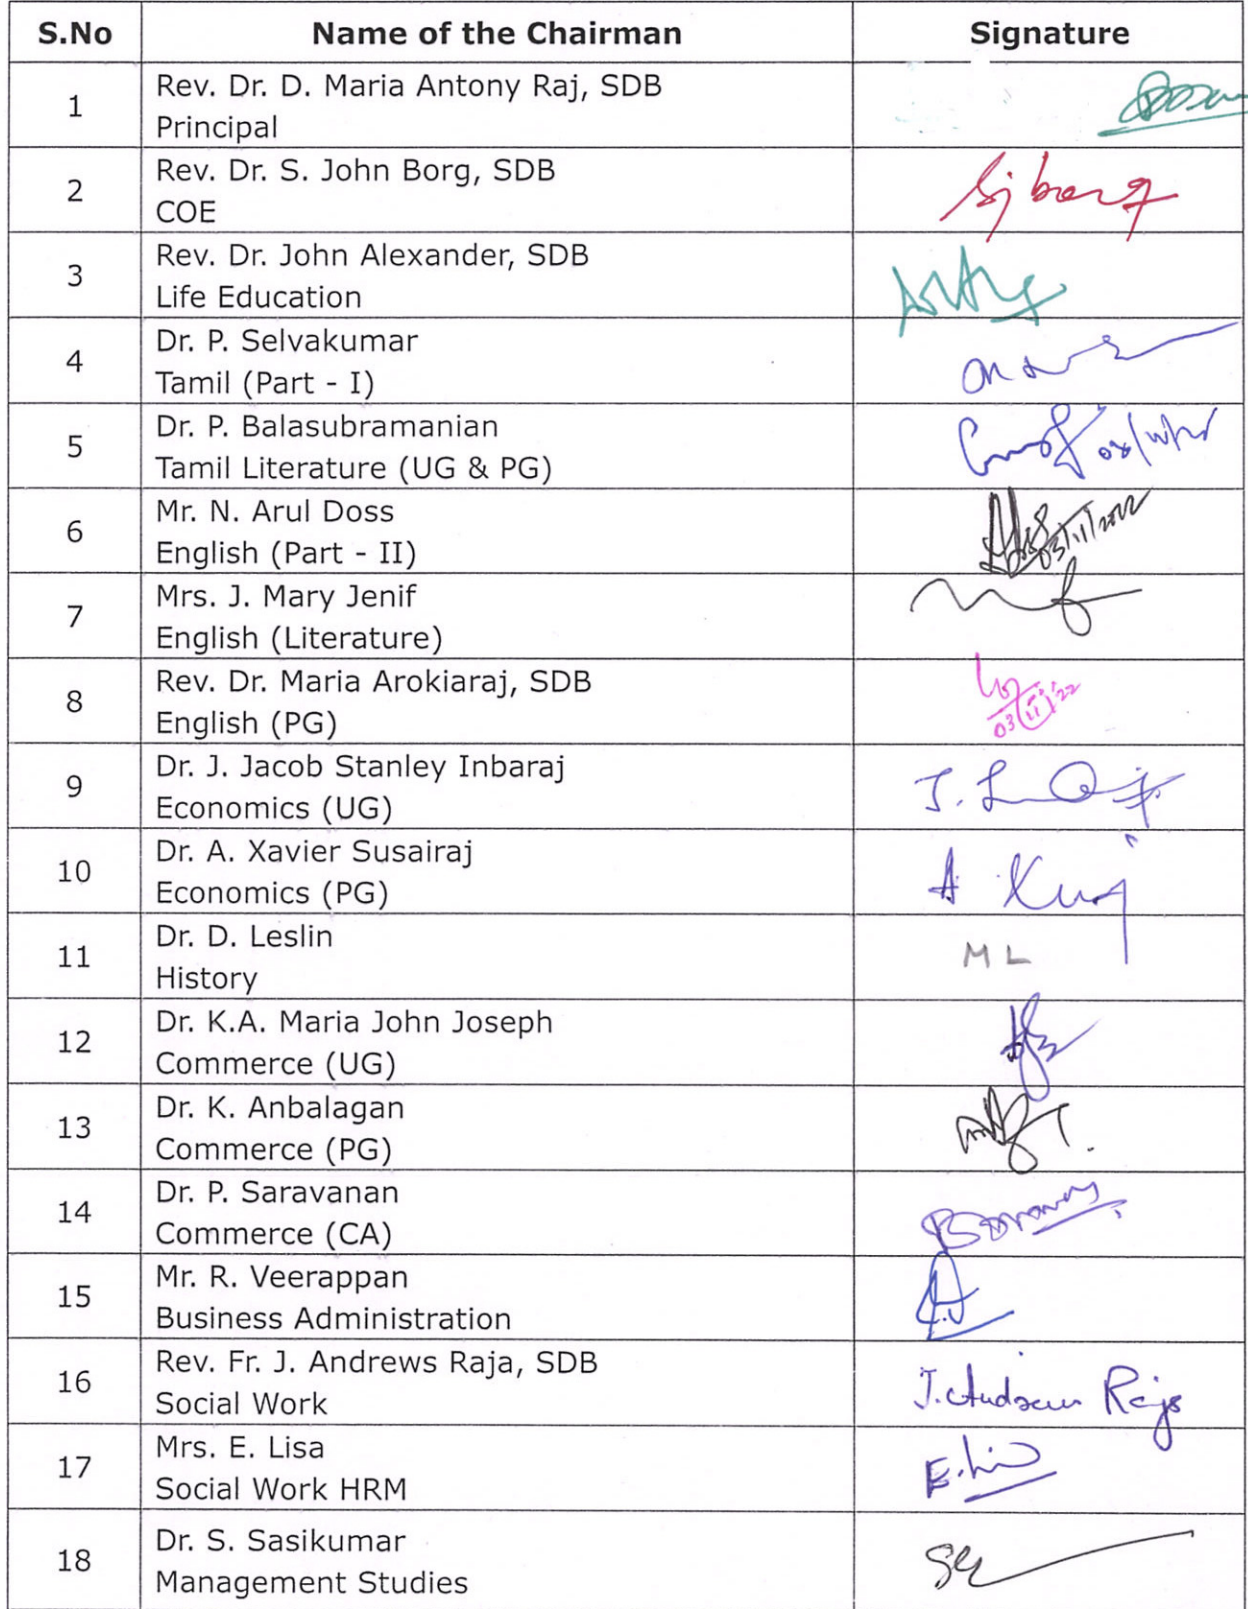 S.No Name of the Chairman Signature
1 Rev. Dr. D. Maria Antony Raj, SDB
Principal
2 Rev. Dr. S. John Borg, SDB Sj borg
COE
3 Rev. Dr. John Alexander, SDB
Life Education
4 Dr. P. Selvakumar
Tamil (Part - I)
5 Dr. P. Balasubramanian
Tamil Literature (UG & PG)
6 Mr. N. Arul Doss 03/11/2022
English (Part - II)
7 Mrs. J. Mary Jenif
English (Literature)
8 Rev. Dr. Maria Arokiaraj, SDB 03/11/'22
English (PG)
9 Dr. J. Jacob Stanley Inbaraj
Economics (UG)
10 Dr. A. Xavier Susairaj
Economics (PG)
11 Dr. D. Leslin M L
History
12 Dr. K.A. Maria John Joseph
Commerce (UG)
13 Dr. K. Anbalagan
Commerce (PG)
14 Dr. P. Saravanan
Commerce (CA)
15 Mr. R. Veerappan
Business Administration
16 Rev. Fr. J. Andrews Raja, SDB J. Andrews Raja
Social Work
17 Mrs. E. Lisa E. Lisa
Social Work HRM
18 Dr. S. Sasikumar
Management Studies